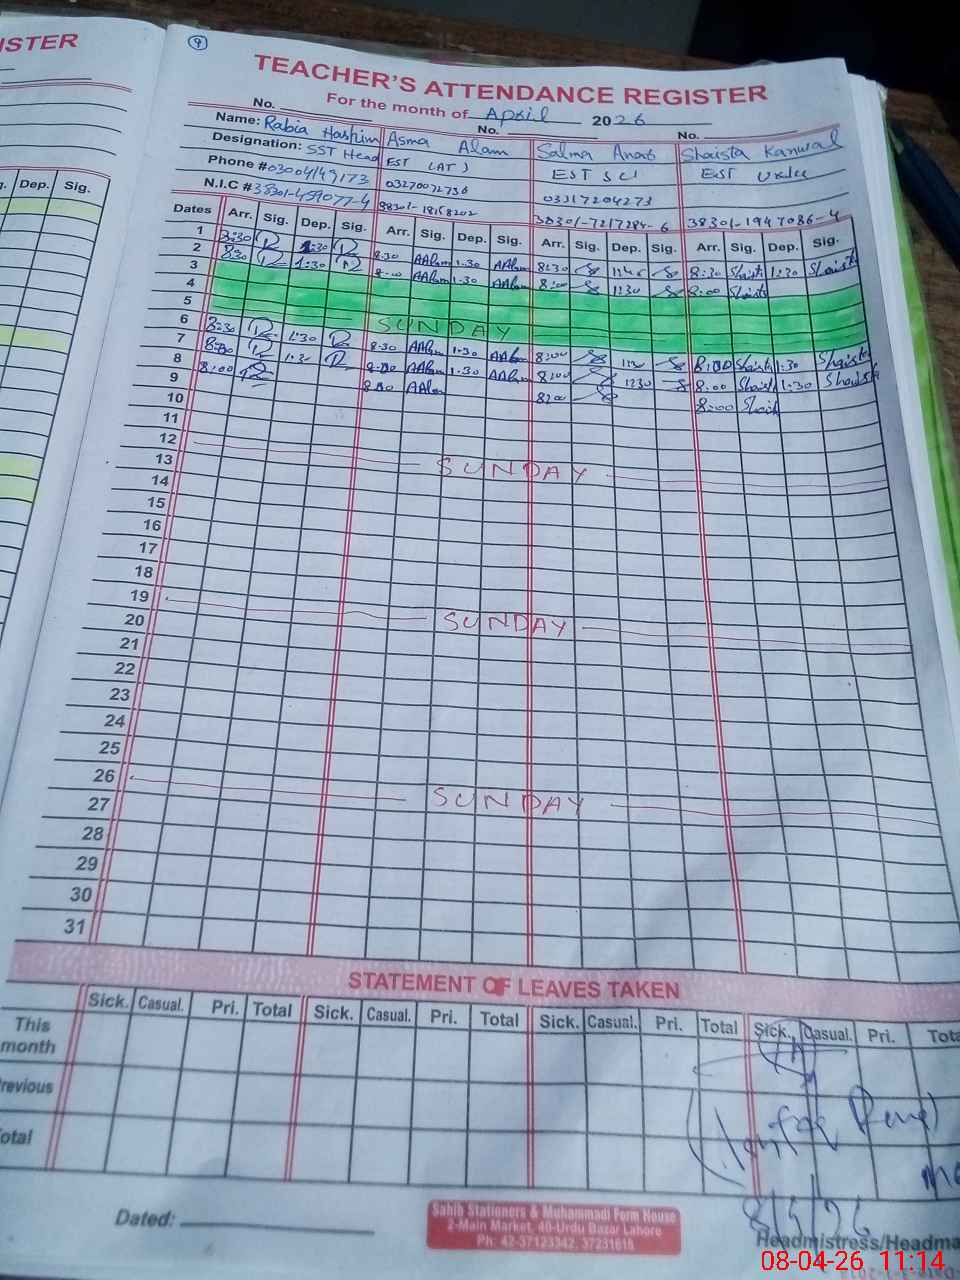 ISTER
9
TEACHER'S ATTENDANCE REGISTER
For the month of April 2026
No. No. No.
Name: Rabia Hashim Asma Alam Salma Anab Shaista Kanwal
Designation: SST Head EST (AT) EST SCI EST
Phone # 03004149173 03270072736 03317204273
N.I.C # 38301-7217284-6 38301-1947086-4
Dep. Sig.
Dates Arr. Sig. Dep. Sig. Arr. Sig. Dep. Sig. Arr. Sig. Dep. Sig. Arr. Sig. Dep. Sig.
1 8:30 1:30 8:30 AAlam 1:30 AAlam 8:30 1145 8:30 Shaista 1:30 Shaista
2 8:30 1:30 AAlam 1:30 AAlam 8:00 1130 8:00 Shaista
3
4
5 SUNDAY
6 8:30 1:30 8:30 AAlam 1:30 AAlam 8:00 1130 8:00 Shaista 1:30 Shaista
7 8:00 1:30 8:00 AAlam 1:30 AAlam 8:00 1230 8:00 Shaista 1:30 Shaista
8 8:00 8:00 AAlam 8:00 8:00 Shaista
9
10
11
12 SUNDAY
13
14
15
16
17
18
19 SUNDAY
20
21
22
23
24
25
26 SUNDAY
27
28
29
30
31
STATEMENT OF LEAVES TAKEN
Sick. Casual. Pri. Total Sick. Casual. Pri. Total Sick. Casual. Pri. Total Sick. Casual. Pri. Tota
This
month
Previous
Total
8/4/26
Dated:
Sahib Stationers & Muhammadi Form House
2-Main Market, 40-Urdu Bazar Lahore
Ph: 42-37123342, 37231615
Headmistress/Headma
08-04-26 11:14